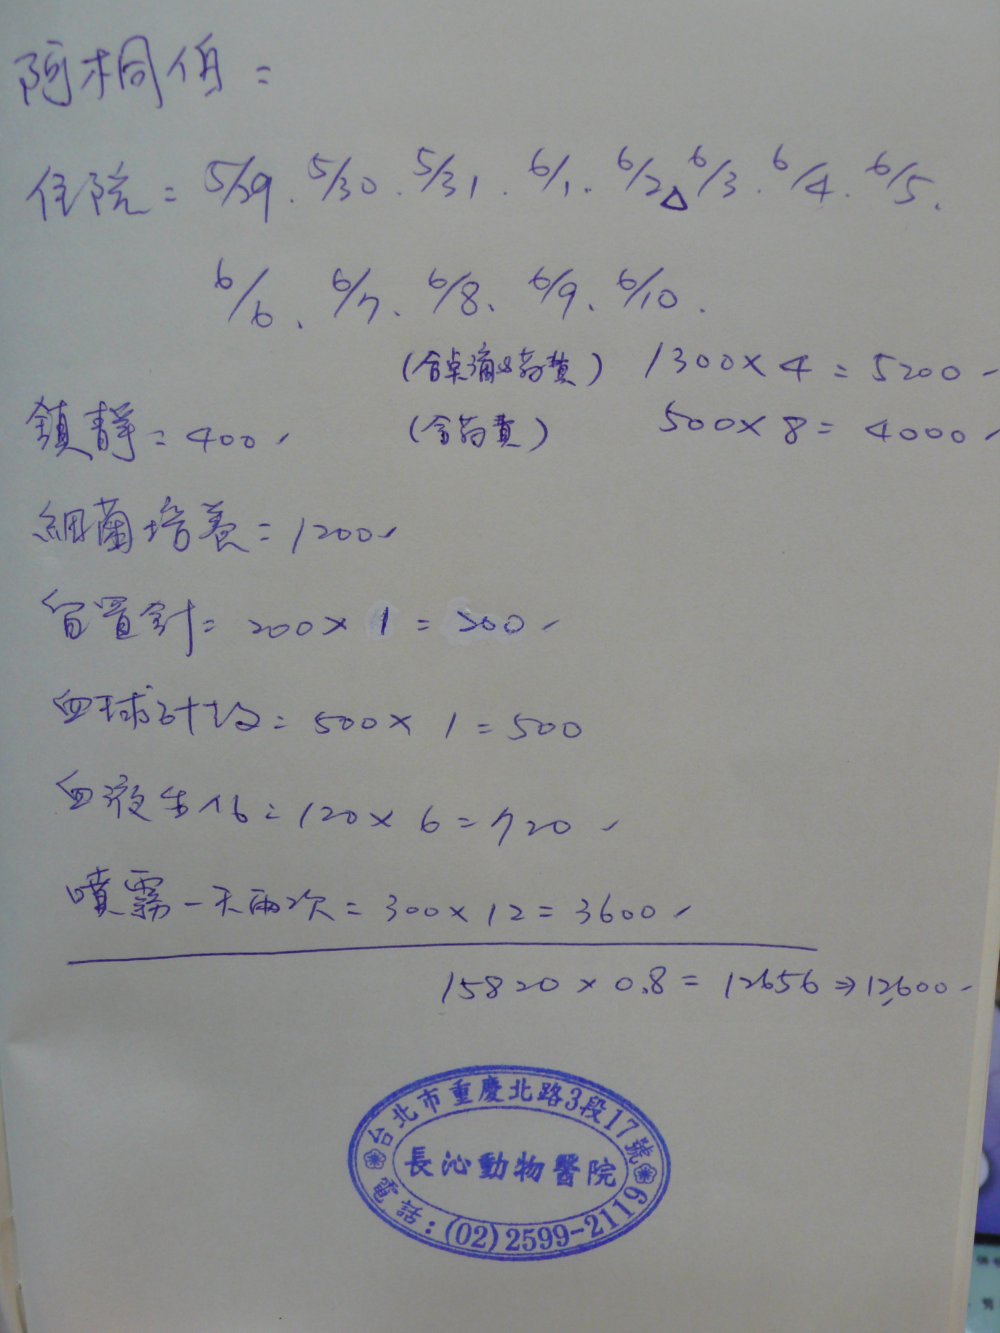 阿桐伯=
住院=5/29.5/30.5/31.6/1.6/2△6/3.6/4.6/5.
6/6、6/7、6/8、6/9、6/10.
(含點滴&葯費) 1300×4=5200-
鎮靜=400, (含葯費) 500×8=4000-
細菌培養=1200-
留置針=200×1=200-
血球計=500×1=500
血液生化=120×6=720-
噴霧一天兩次=300×12=3600-
15820×0.8=12656⇒12,600-
台北市重慶北路3段17號
長沁動物醫院
電話:(02)2599-2119